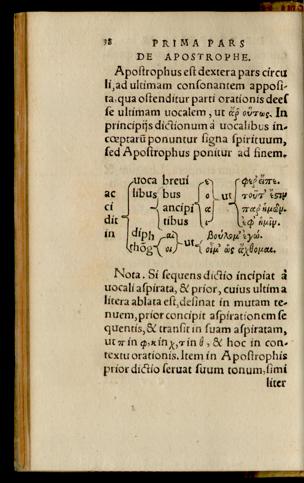 38 PRIMA PARS
DE APOSTROPHE.
Apostrophus est dextera pars circu
li, ad ultimam consonantem apposi-
ta. qua ostenditur parti orationis dees
se ultimam uocalem, ut ἆρ' οὕτως. In
principijs dictionum à uocalibus in-
cœptarũ ponuntur signa spirituum,
sed Apostrophus ponitur ad finem.
uoca breui ε φέρ' εἶπε.
ac libus bus ο ut τοῦτ' ἔστιν
ci ancipi α παρ' ἡμῶν.
dit tibus ι ἐφ' ἡμῖν.
in diph αι ut Βούλομ' ἐγώ.
thõg οι οἴμ' ὡς ἄχθομαι.
Nota. Si sequens dictio incipiat à
uocali aspirata, & prior, cuius ultima
litera ablata est, desinat in mutam te-
nuem, prior concipit aspirationem se
quentis, & transit in suam aspiratam,
ut π in φ, κ in χ, τ in θ, & hoc in con-
textu orationis. Item in Apostrophis
prior dictio seruat suum tonum, simi
liter